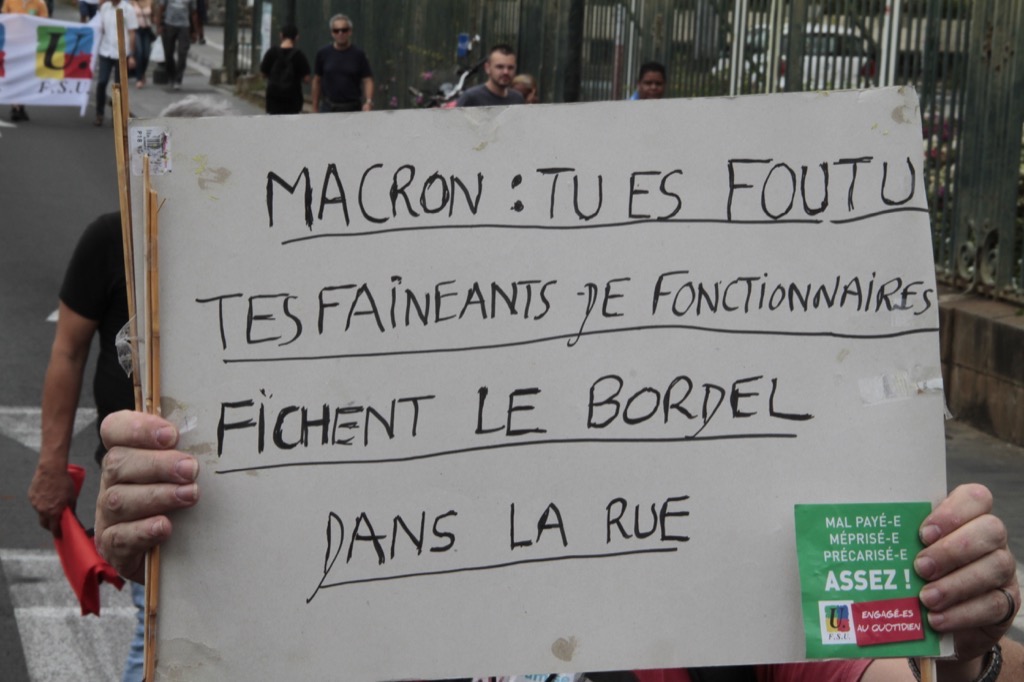 U.
F.S.U
MACRON : TU ES FOUTU
TES FAÏNEANTS DE FONCTIONNAIRES
FICHENT LE BORDEL
DANS LA RUE
MAL PAYÉ-E
MÉPRISÉ-E
PRÉCARISÉ-E
ASSEZ !
U.
F.S.U.
ENGAGÉ·ES
AU QUOTIDIEN